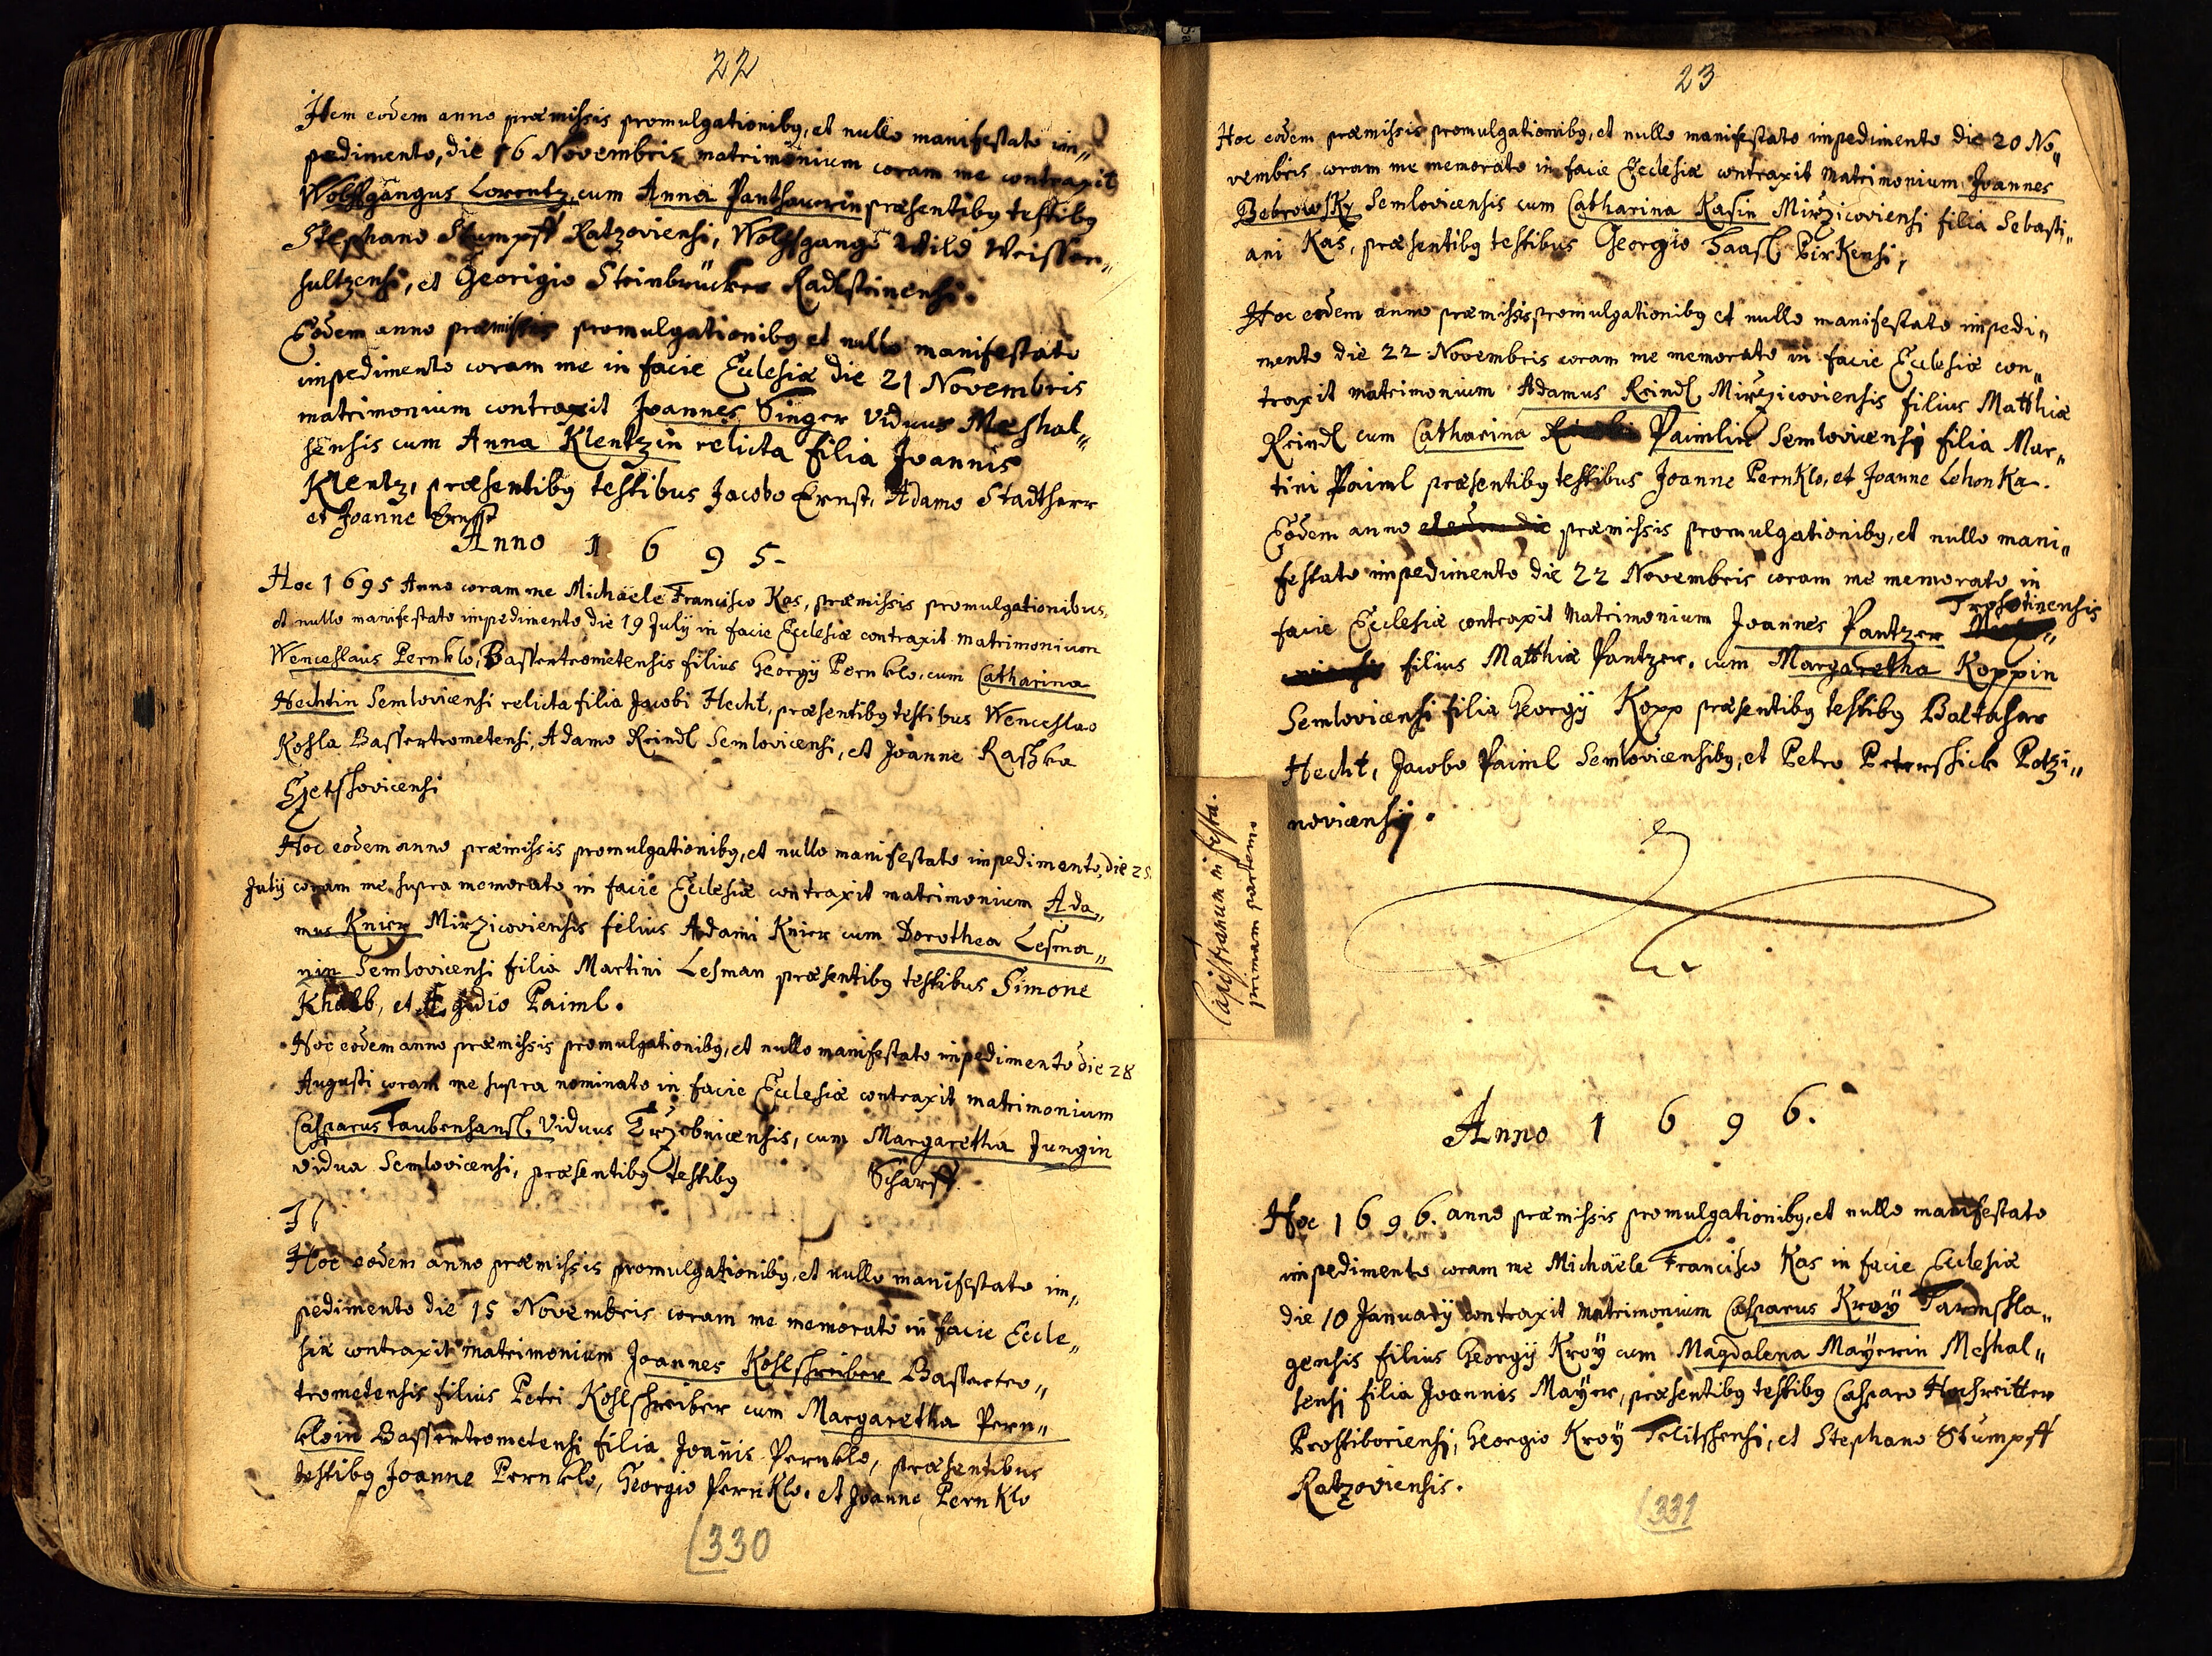 22
Item eodem anno præmissis promulgationibq, et nullo manifestato im„
pedimento, die 16 Novembris matrimonium coram me contraxit
Wolffgangus Lorentz, cum Anna Panthauerin præsentibq testibq
Stephano Stumpff Ratzoviensi, Wolffgango Wild Weissen„
sultzensi, et Georigio Steinbrücker Radlsteinensi.
Eodem anno præmissis promulgationibq et nullo manifestato
impedimento coram me in facie Ecclesiæ die 21 Novembris
matrimonium contraxit Joannes Singer viduus Meshal„
sensis cum Anna Klentzin relicta filia Joannis
Klentz, præsentibq testibus Jacobo Ernst, Adamo Stadtherr
et Joanne Ernst
Anno 1 6 9 5.
Hoc 1695 Anno coram me Michäele Francisco Kas, præmissis promulgationibus,
et nullo manifestato impedimento die 19 Julÿ in facie Ecclesiæ contraxit matrimonium
Wenceslaus Pernklo, Bassertrometensis filius Georgÿ Pernklo, cum Catharina
Hechtin Semlovicensi relicta filia Jacobi Hecht, præsentibq testibus Wenceslao
Kohla Bassertrometensi, Adamo Reindl Semlovicensi, et Joanne Rashka
Hoc eodem anno præmissis promulgationibq, et nullo manifestato impedimento, die 25.
Julÿ coram me supra memorato in facie Ecclesiæ contraxit matrimonium Ada„
mus Knier Mirzicoviensis filius Adami Knier cum Dorothea Lesma„
nin Semlovicensi filia Martini Lesman præsentibq testibus Simone
Khalb, et Ægidio Paiml.
Hoc eodem anno præmissis promulgationibq, et nullo manifestato impedimento die 28
Augusti coram me supra nominato in facie Ecclesiæ contraxit matrimonium
Casparus Taubenhansl, viduus Trzebnicensis, cum Margaretha Jungin
vidua Semlovicensi, præsentibq testibq Scharff
Hoc eodem anno præmissis promulgationibq, et nullo manifestato im„
pedimento die 15 Novembris coram me memorato in facie Eccle„
siæ contraxit matrimonium Joannes Kohlschreiber Bassertro„
metensis filius Petri Kohlschreiber cum Margaretha Pern„
kloin Bassertrometensi filia Joañis Pernklo, præsentibus
testibq Joanne Pernklo, Georgio Pernklo, et Joanne Pernklo
330
23
Hoc eodem præmissis promulgationibq, et nullo manifestato impedimento die 20 No„
vembris coram me memorato in facie Ecclesiæ contraxit Matrimonium Joannes
Bebrowsky Semlovicensis cum Catharina Kasin Mirzicoviensi filia Sebasti„
ani Kas, præsentibq testibus Georgio Haasl Pirkensi,
Hoc eodem anno præmissis promulgationibq et nullo manifestato impedi„
mento die 22 Novembris coram me memorato in facie Ecclesiæ con„
traxit matrimonium Adamus Reindl Mirzicoviensis filius Matthiæ
Reindl cum Catharina Paimlin Semlovicensi filia Mar„
tini Paiml præsentibq testibus Joanne Pernklo, et Joanne Lehonka.
Eodem anno et eodem die præmissis promulgationibq, et nullo mani„
festato impedimento die 22 Novembris coram me memorato in
facie Ecclesiæ contraxit Matrimonium Joannes Pantzer Trohatinensis
filius Matthiæ Pantzer, cum Margaretha Koppin
Semlovicensi filia Georgÿ Kopp præsentibq testibq Baltasar
Hecht, Jacobo Paiml Semlovicensibq, et Petro Petershick Potzi„
novicensi.
Capistranum in festa.
primam partem
Anno 1 6 9 6.
Hoc 1 6 9 6. anno præmissis promulgationibq, et nullo manifestato
impedimento coram me Michäele Francisco Kas in facie Ecclesiæ
die 10 Januarÿ contraxit matrimonium Casparus Kroÿ Tarmshla„
gensis filius Georgÿ Kroÿ cum Magdalena Mayerin Meshal„
sensi filia Joannis Mayer, præsentibq testibq Casparo Hochreitter
Prostiboriensi, Georgio Kroÿ Telitshensi, et Stephano Stumpff
Ratzoviensis.
331